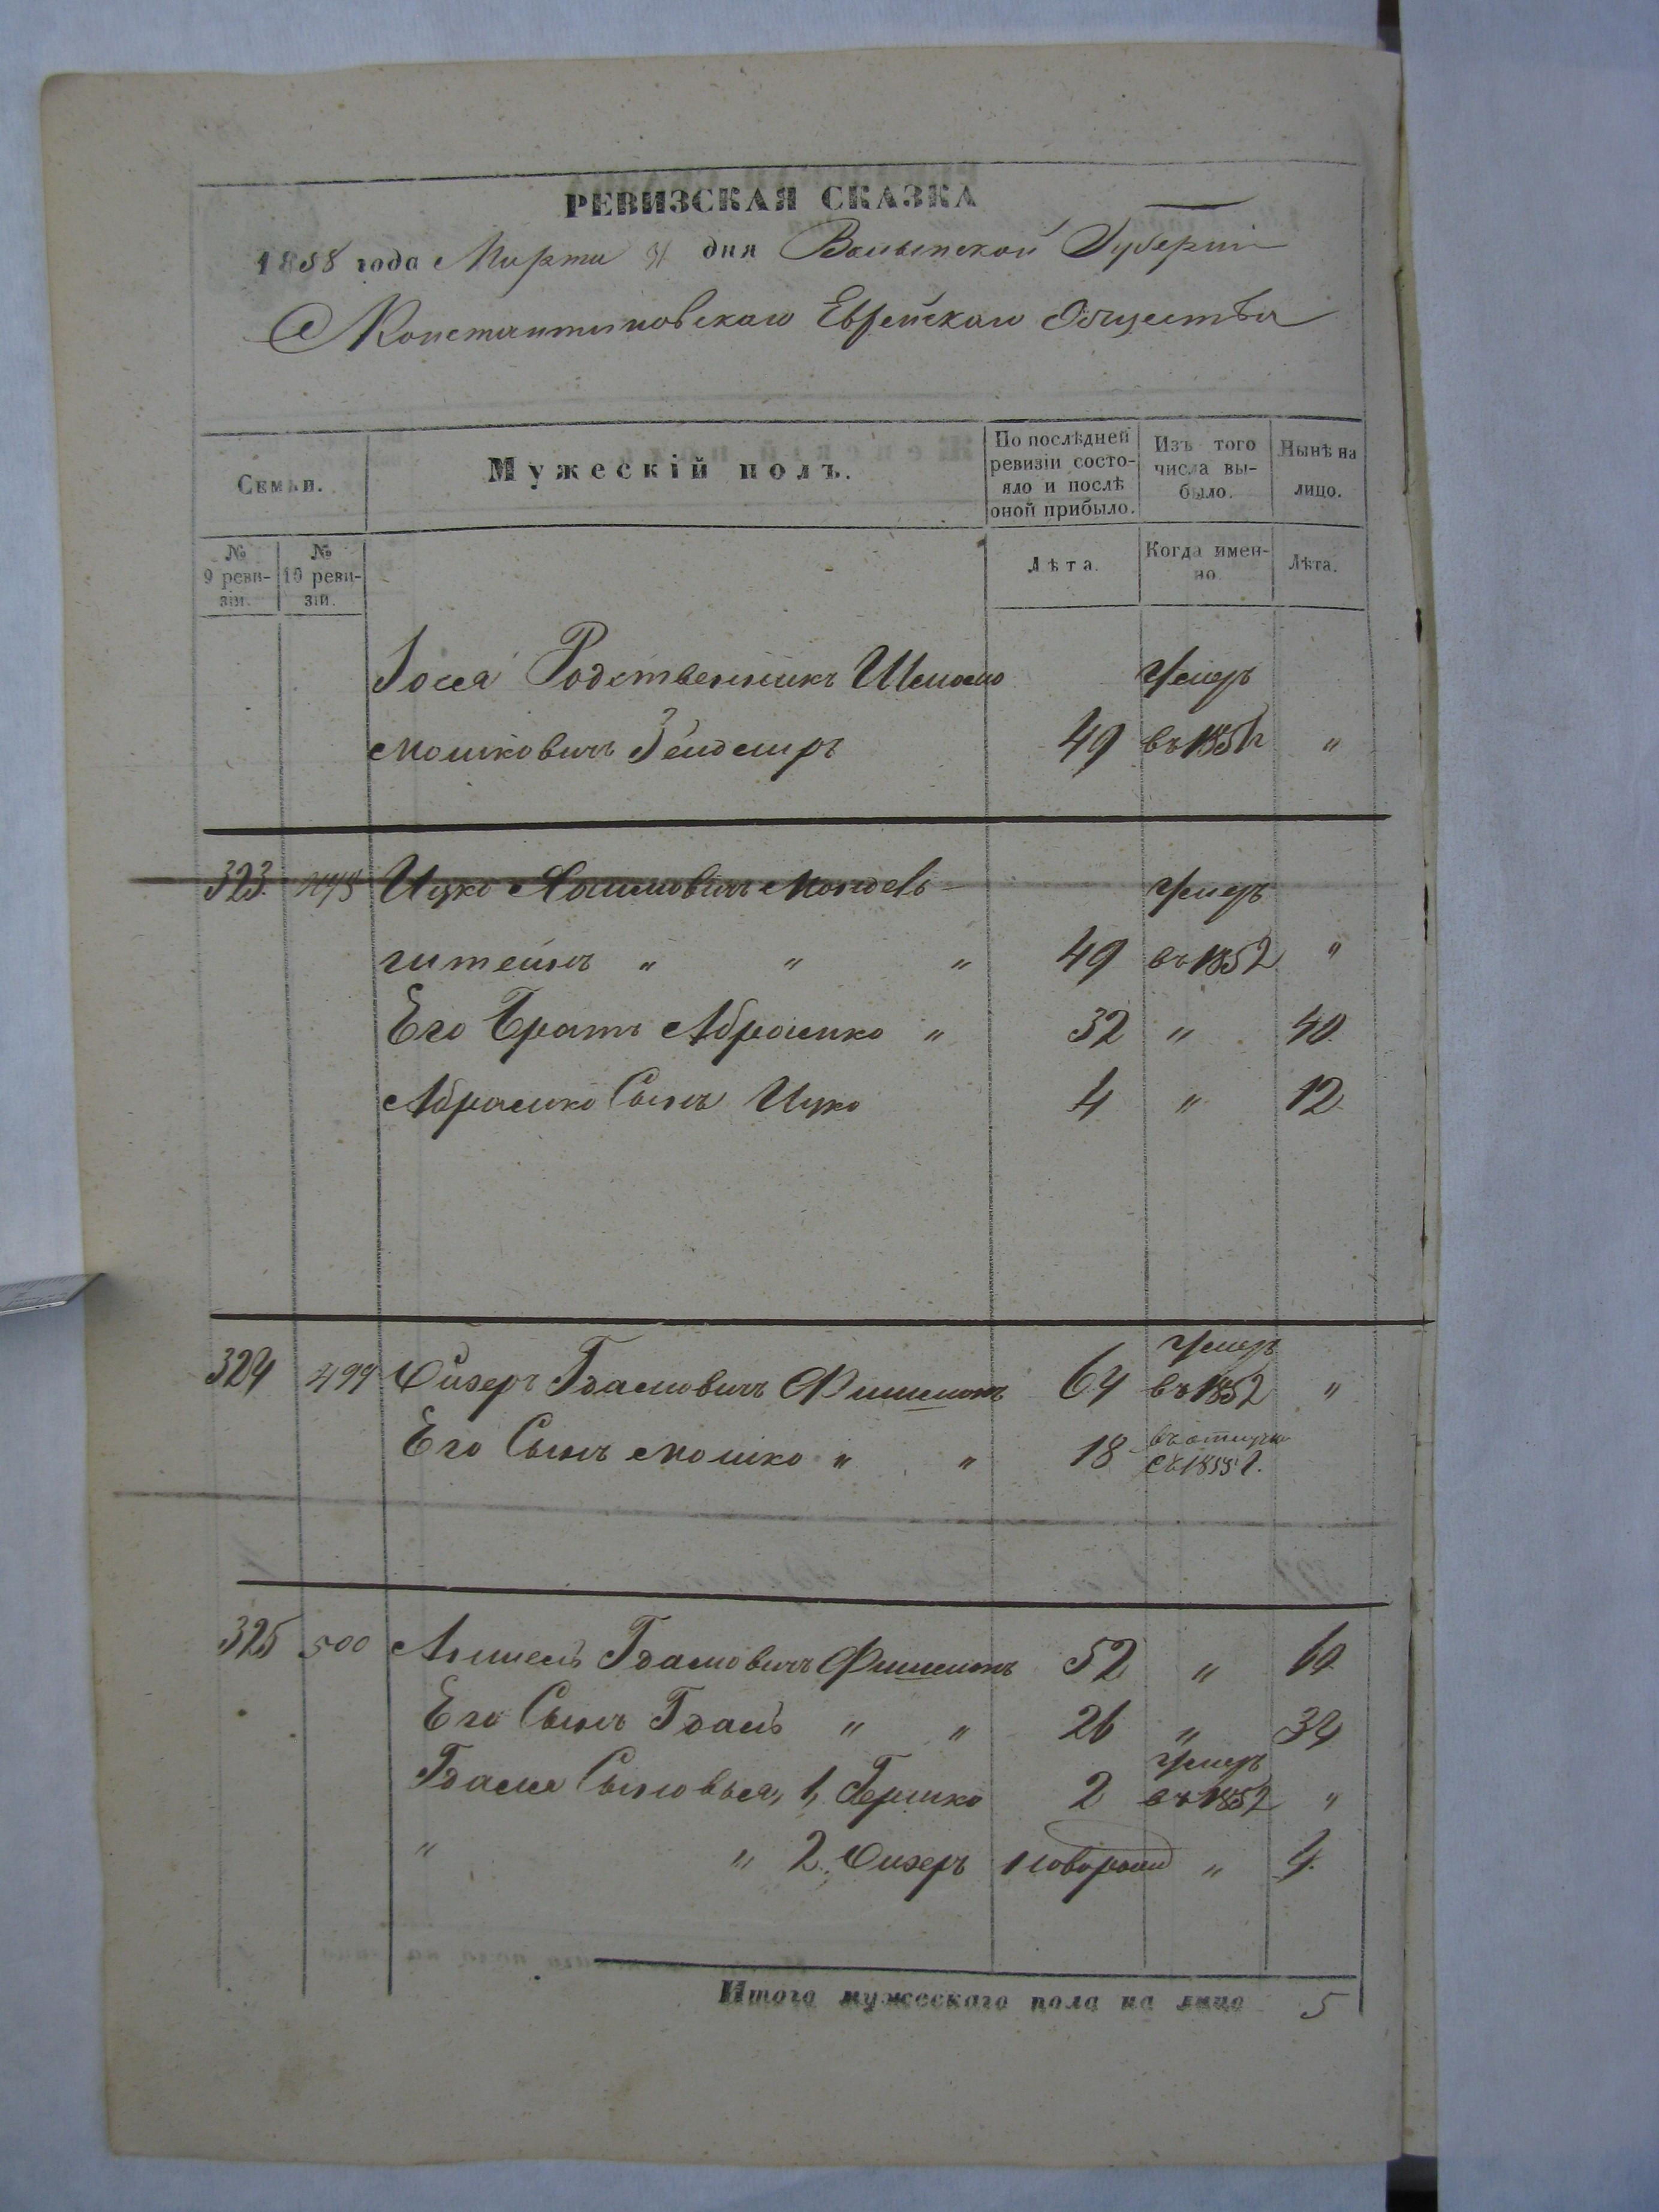 РЕВИЗСКАЯ СКАЗКА
1858 года Марта дня Волынской Губерніи
Константиновскаго Еврейскаго Общества
Семьи.
Мужескій полъ.
По послѣдней ревизіи состояло и послѣ оной прибыло.
Изъ того числа выбыло.
Нынѣ на лицо.
№ 9 ревизіи.
№ 10 ревизіи.
Лѣта.
Когда именно
Лѣта.
Іося Родственникъ Шлиомо умеръ
Мошковичъ 49 въ 185 "
323 Ицко Мондель умеръ
штейнъ " " " 49 въ 1852 "
Его Братъ Абрамко " 32 " 40
Абрамко Сынъ Ицко 4 " 12
умеръ
324 499 Сихеръ Гдаловичъ Фишманъ 64 въ 1852 "
Его Сынъ Мошко " " 18 въ отлучке
съ 1852.
325 500 Аншель Гдаловичъ Фишманъ 52 " 60
Его Сынъ Гдаль " " 26 " 34
умеръ
Гдаля Сыновья, 1, Гершко 2 въ 1852 "
" " 2. Сихеръ новорожд " 4.
Итого мужескаго пола на лицо 5